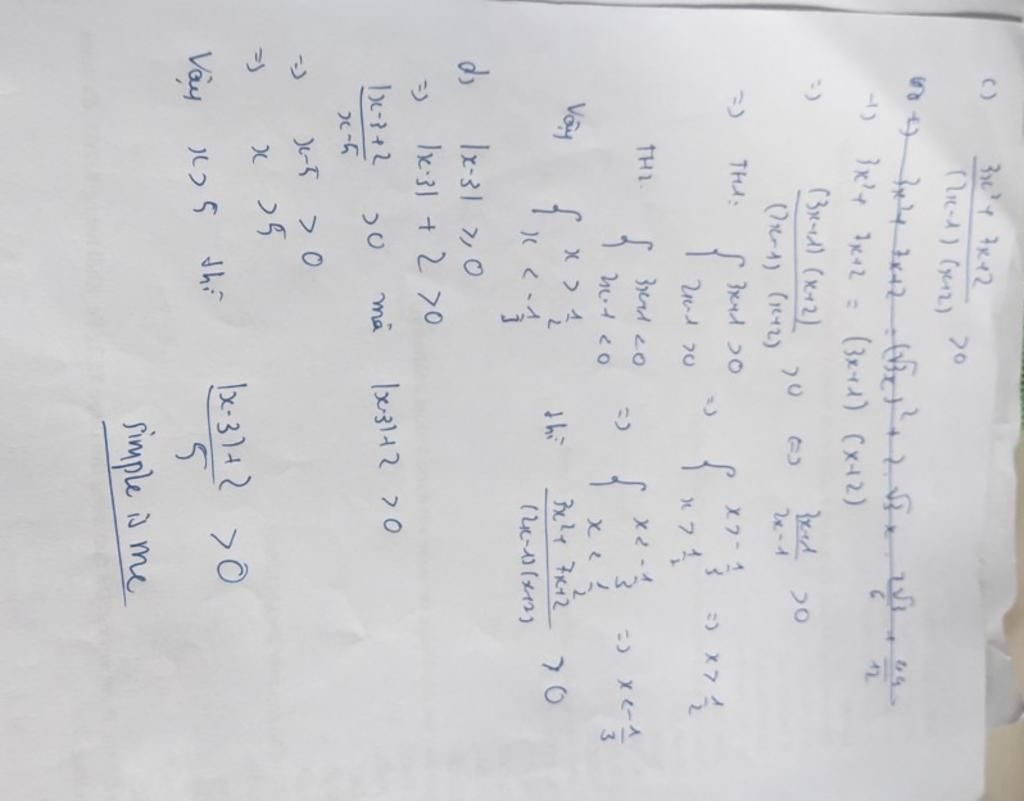 c) (3x² + 7x+2)/((2x-1)(x+2)) >0
3x² + 7x+2 = (√3x)² + 2.√3x. 7√3/6 + 49/12
=) 3x² + 7x+2 = (3x+1) (x+2)
=) ((3x+1) (x+2))/((2x-1) (x+2)) >0 <=> (3x+1)/(2x-1) >0
=) TH1: { 3x+1 >0 2x-1 >0 => { x>-1/3 x>1/2 => x>1/2
TH2: { 3x+1 <0 2x-1 <0 => { x<-1/3 x<1/2 => x<-1/3
Vậy { x>1/2 x<-1/3 thì (3x²+ 7x+2)/((2x-1)(x+2)) >0
d) |x-3| ≥0
=) |x-3| + 2 >0
(|x-3|+2)/(x-5) >0 mà |x-3|+2 >0
=) x-5 >0
=) x >5
Vậy x>5 thì (|x-3|+2)/5 >0
simple is me